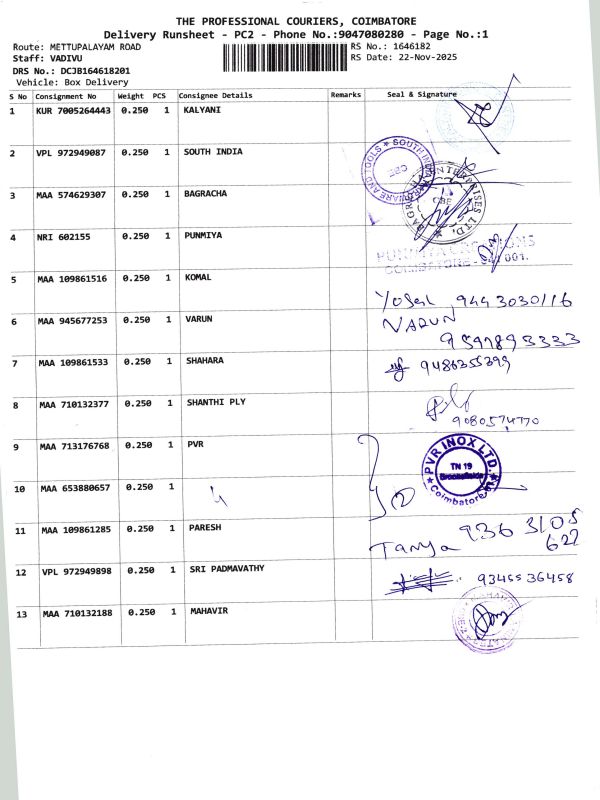 THE PROFESSIONAL COURIERS, COIMBATORE
Delivery Runsheet - PC2 - Phone No.:9047080280 - Page No.:1
Route: METTUPALAYAM ROAD
RS No.: 1646182
Staff: VADIVU
RS Date: 22-Nov-2025
DRS No.: DCJB164618201
Vehicle: Box Delivery
S No Consignment No Weight PCS Consignee Details Remarks Seal & Signature
1 KUR 7005264443 0.250 1 KALYANI
2 VPL 972949087 0.250 1 SOUTH INDIA
SOUTH INDIA HARDWARE AND TOOLS
CBE
3 MAA 574629307 0.250 1 BAGRACHA
BAGRACHA ENTERPRISES LTD.
CBE
4 NRI 602155 0.250 1 PUNMIYA
PUNMIYA CREATIONS
COIMBATORE - 641 001.
5 MAA 109861516 0.250 1 KOMAL
9443030116
6 MAA 945677253 0.250 1 VARUN
VARUN
9597893333
7 MAA 109861533 0.250 1 SHAHARA
9486355399
8 MAA 710132377 0.250 1 SHANTHI PLY
9080574770
9 MAA 713176768 0.250 1 PVR
PVR INOX LTD.
TN 19
Brookefields
Coimbatore
10 MAA 653880657 0.250 1
11 MAA 109861285 0.250 1 PARESH
Tanya 936 3105
627
12 VPL 972949898 0.250 1 SRI PADMAVATHY
9345536458
13 MAA 710132188 0.250 1 MAHAVIR